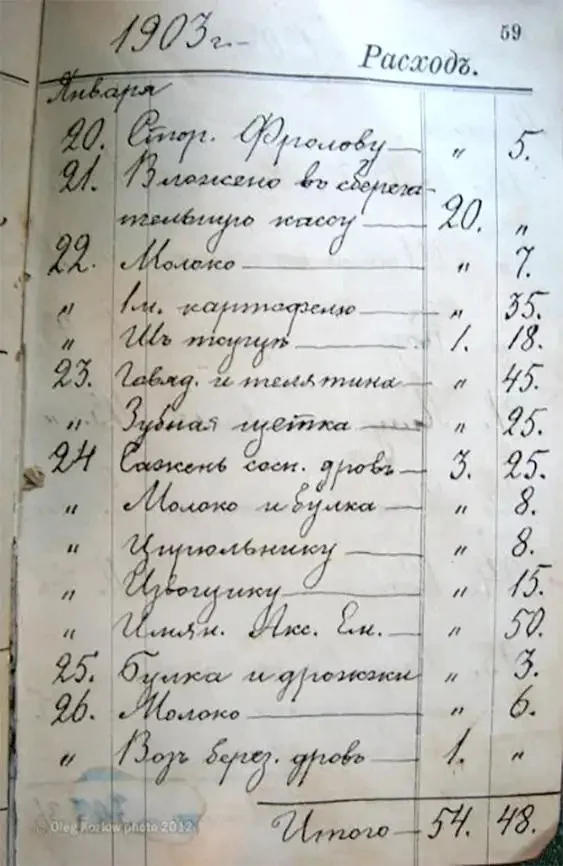 59
1903 г.
Расходъ.
Января
20. Стор. Фролову — " 5.
21. Вложено въ сберега-
тельную кассу — 20. "
22. Молоко — " 7.
" 1 м. картофелю — " 35.
" 1. 18.
23. Говяд. и телятина — " 45.
" Зубная щетка — " 25.
24 Сажень сосн. дровъ — 3. 25.
" Молоко и булка — " 8.
" Цирюльнику — " 8.
" Извощику — " 15.
" Имян. Акс. Ем. — " 50.
25. Булка и дрожжи " 3.
26. Молоко — " 6.
" Возъ берез. дровъ — 1. "
Итого — 54. 48.
© Oleg Kozlow photo 2012